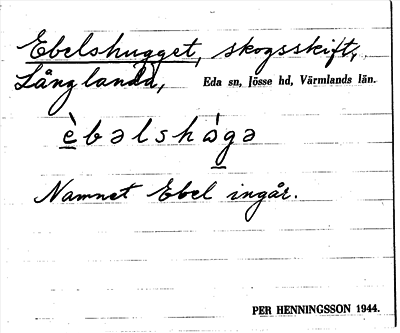 Ebelshugget, skogsskift,
Långlanda, Eda sn, Jösse hd, Värmlands län.
è b ə l s h ò g ə
Namnet Ebel ingår.
PER HENNINGSSON 1944.